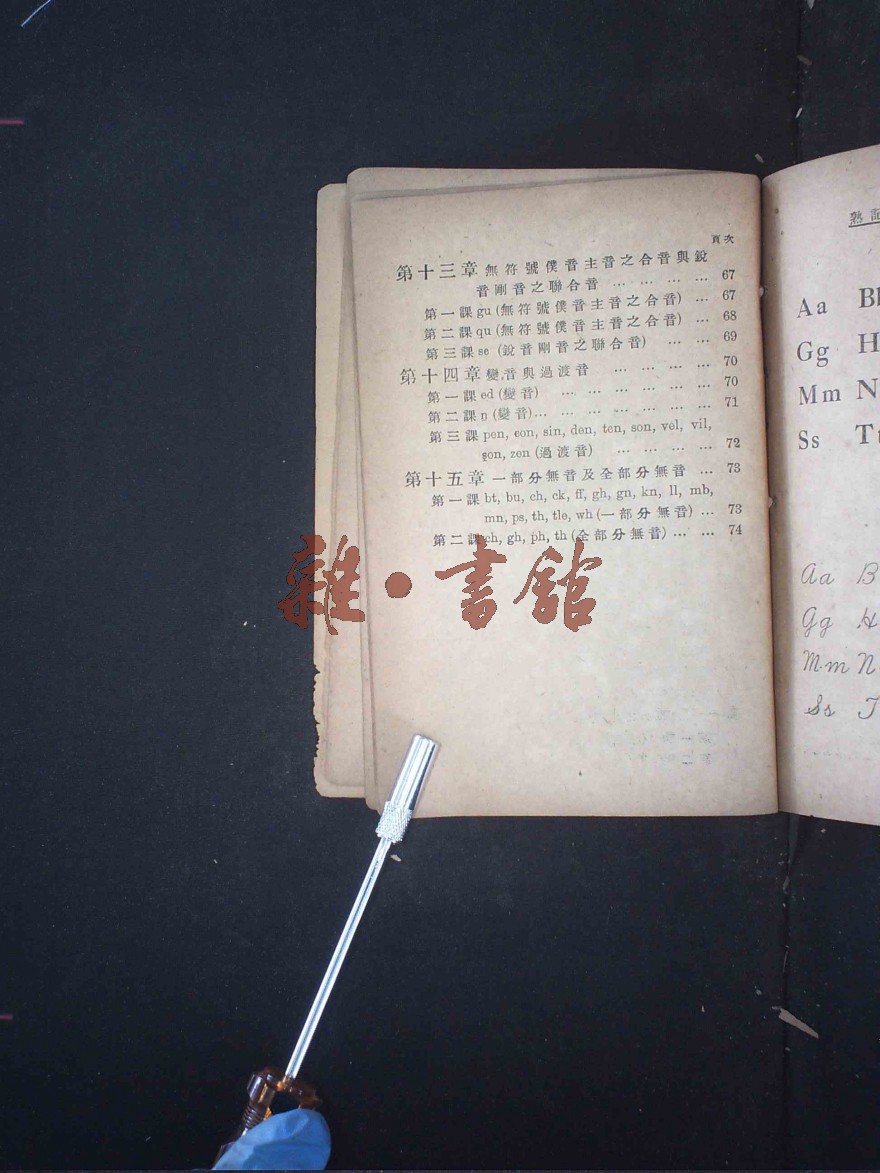 頁次
第十三章 無符號僕音主音之合音與銳
音剛音之聯合音 … … … … 67
第一課 gu (無符號僕音主音之合音) … 67
第二課 qu (無符號僕音主音之合音) … 68
第三課 se (銳音剛音之聯合音) … … 69
第十四章 變音與過渡音 … … … … 70
第一課 ed (變音) … … … … … … 70
第二課 n (變音)… … … … … … … 71
第三課 pen, con, sin, den, ten, son, vel, vil,
gon, zen (過渡音) … … … … 72
第十五章 一部分無音及全部分無音 … 73
第一課 bt, bu, ch, ck, ff, gh, gn, kn, ll, mb,
mn, ps, th, tle, wh (一部分無音) … 73
第二課 ch, gh, ph, th (全部分無音) … … 74
雜·書館
熟記
Aa B
Gg H
Mm N
Ss T
Aa B
Gg H
Mm N
Ss T